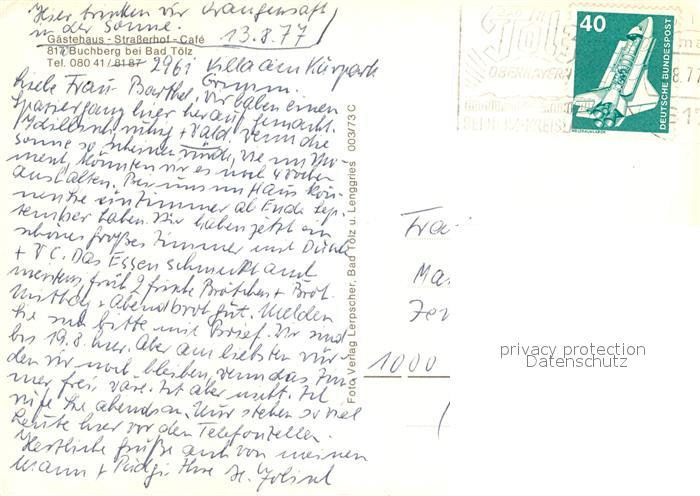 Hier trinken wir Orangensaft
in der Sonne. 13.8.77
Gästehaus - Straßerhof - Café
817 Buchberg bei Bad Tölz
Tel. 080 41 / 81 87 2961 Villa am Kurpark
Liebe Frau Barthel, Wir haben einen
Spaziergang hier herauf gemacht.
+ Wald. Wenn die
Sonne so scheinen würde, wie im Mo-
ment, könnten wir es noch 4 Wochen
aushalten. Bei uns im Haus
Zimmer ab Ende Sep-
tember haben. Wir haben jetzt ein
schönes großes Zimmer mit Dusche
+ WC. Das Essen schmeckt amt
meistens, früh 2 frische Brötchen + Brot.
Mittag + Abendbrot gut. Melden
Sie sich bitte mit Brief. Wir sind
bis 19.8. hier. Aber am liebsten wür-
den wir noch bleiben, wenn das Zim-
mer frei wäre. Ist aber nicht. Ich
rufe Sie abends an. Nur stehen so viel
Leute hier vor den Telefonzellen.
Herzliche Grüße auch von meinem
Mann + Ihre
Foto Verlag Lerpscher, Bad Tölz u. Lenggries 003/73 C
BAD IN
Tölz
OBERBAYERN
40
DEUTSCHE BUNDESPOST
Frau
Ma
1000
privacy protection
Datenschutz